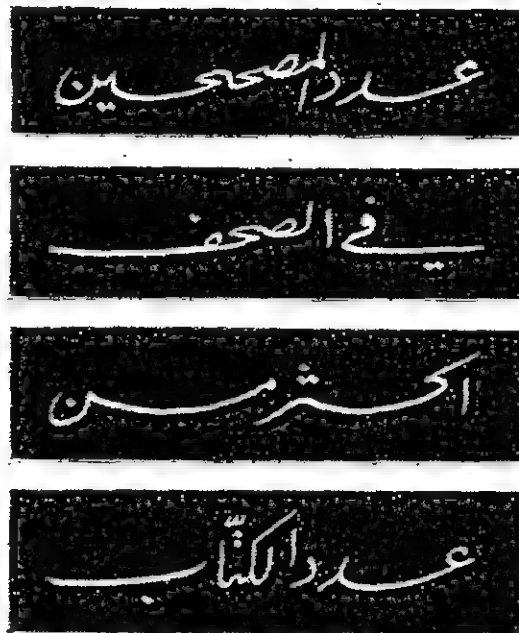 عدد المصححين
في الصحف
اكثر من
عدد الكتّاب